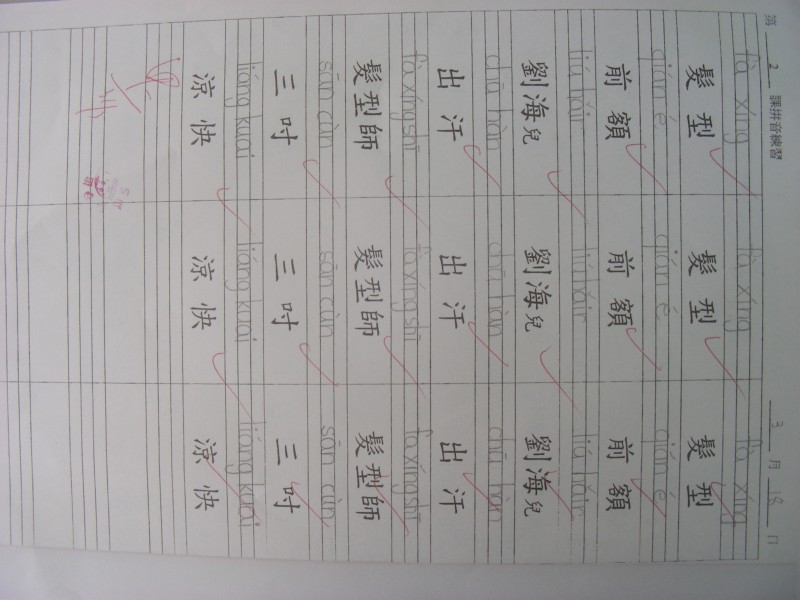 第 2 課拼音練習 3 月 18 日
fà xíng fà xíng fà xíng
髮型 髮型 髮型
qián é qián é qián é
前額 前額 前額
liú hǎir liú hǎir liú hǎir
劉海兒 劉海兒 劉海兒
chū hàn chū hàn chū hàn
出汗 出汗 出汗
fà xíng shī fà xíng shī fà xíng shī
髮型師 髮型師 髮型師
sān cùn sān cùn sān cùn
三吋 三吋 三吋
liáng kuai liáng kuai liáng kuai
涼快 涼快 涼快